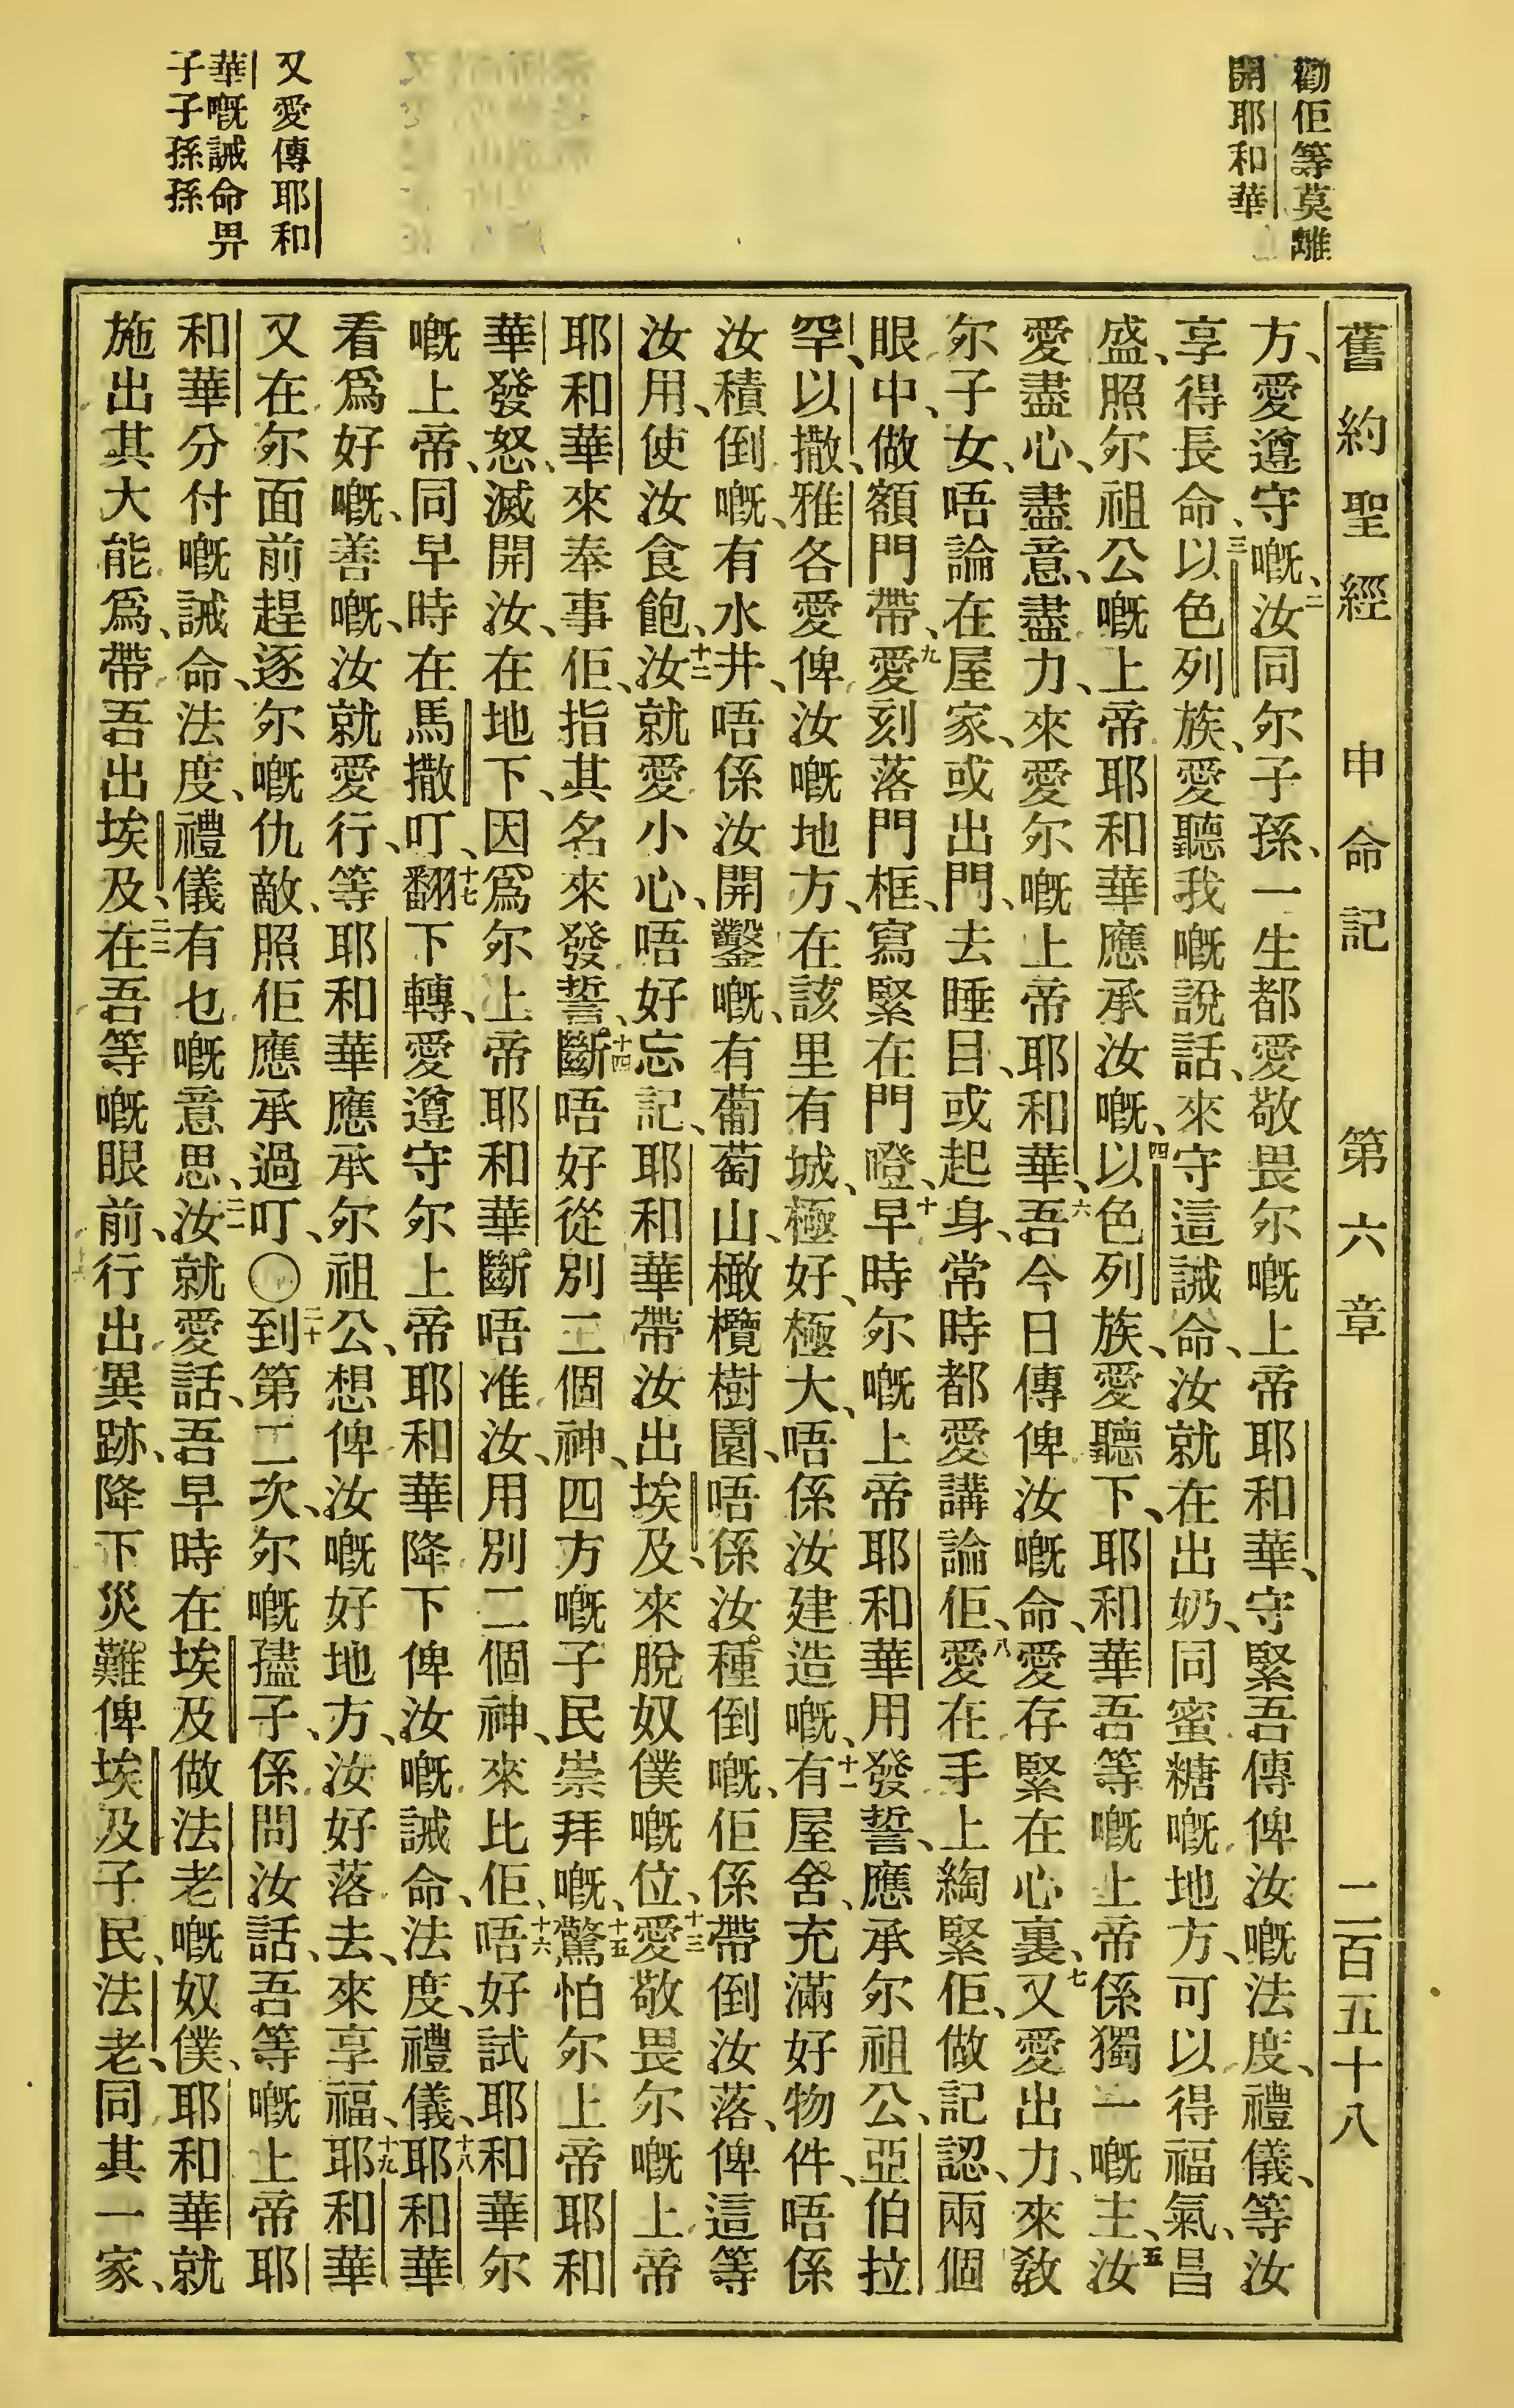 勸佢等莫離
開耶和華
又愛傳耶和
華嘅誡命畀
子子孫孫
舊約聖經 申命記 第六章 二百五十八
方、愛遵守嘅、二汝同尔子孫、一生都愛敬畏尔嘅上帝耶和華、守緊吾傳俾汝嘅法度、禮儀、等汝
享得長命、三以色列族、愛聽我嘅說話、來守這誡命、汝就在出奶、同蜜糖嘅地方、可以得福氣、昌
盛、照尔祖公嘅上帝耶和華應承汝嘅、四以色列族、愛聽下、耶和華吾等嘅上帝係獨一嘅主、五汝
愛盡心、盡意、盡力、來愛尔嘅上帝耶和華、六吾今日傳俾汝嘅命、愛存緊在心裏、七又愛出力、來教
尔子女、唔論在屋家、或出門、去睡目、或起身、常時都愛講論佢、八愛在手上綯緊佢、做記認、兩個
眼中、做額門帶、九愛刻落門框、寫緊在門嶝、十早時尔嘅上帝耶和華用發誓、應承尔祖公、亞伯拉
罕、以撒、雅各、愛俾汝嘅地方、在該里有城、極好、極大、唔係汝建造嘅、十一有屋舍、充滿好物件、唔係
汝積倒嘅、有水井、唔係汝開鑿嘅、有葡萄山、橄欖樹園、唔係汝種倒嘅、佢係帶倒汝落、俾這等
汝用、使汝食飽、十二汝就愛小心、唔好忘記、耶和華帶汝出埃及、來脫奴僕嘅位、十三愛敬畏尔嘅上帝
耶和華來奉事佢、指其名來發誓、十四斷唔好從別二個神、四方嘅子民崇拜嘅、十五驚怕尔上帝耶和
華發怒、滅開汝、在地下、因爲尔上帝耶和華斷唔准汝、用別二個神、來比佢、十六唔好試耶和華尔
嘅上帝、同早時在馬撒叮、十七翻下轉、愛遵守尔上帝耶和華降下俾汝嘅誡命、法度、禮儀、十八耶和華
看爲好嘅、善嘅、汝就愛行、等耶和華應承尔祖公、想俾汝嘅好地方、汝好落去、來享福、十九耶和華
又在尔面前趕逐尔嘅仇敵、照佢應承過叮、〇二十到第二次、尔嘅孻子、係問汝話、吾等嘅上帝耶
和華分付嘅誡命、法度、禮儀有乜嘅意思、二一汝就愛話、吾早時在埃及做法老嘅奴僕、耶和華就
施出其大能爲、帶吾出埃及、二二在吾等嘅眼前、行出異跡、降下災難俾埃及子民、法老、同其一家、